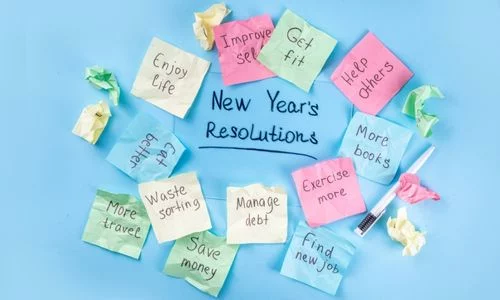 New Year's
Resolutions
Improve
self
Get
fit
Help
Others
More
books
Exercise
more
Find
new job
Manage
debt
Save
money
Waste
sorting
More
travel
Eat
better
Enjoy
life